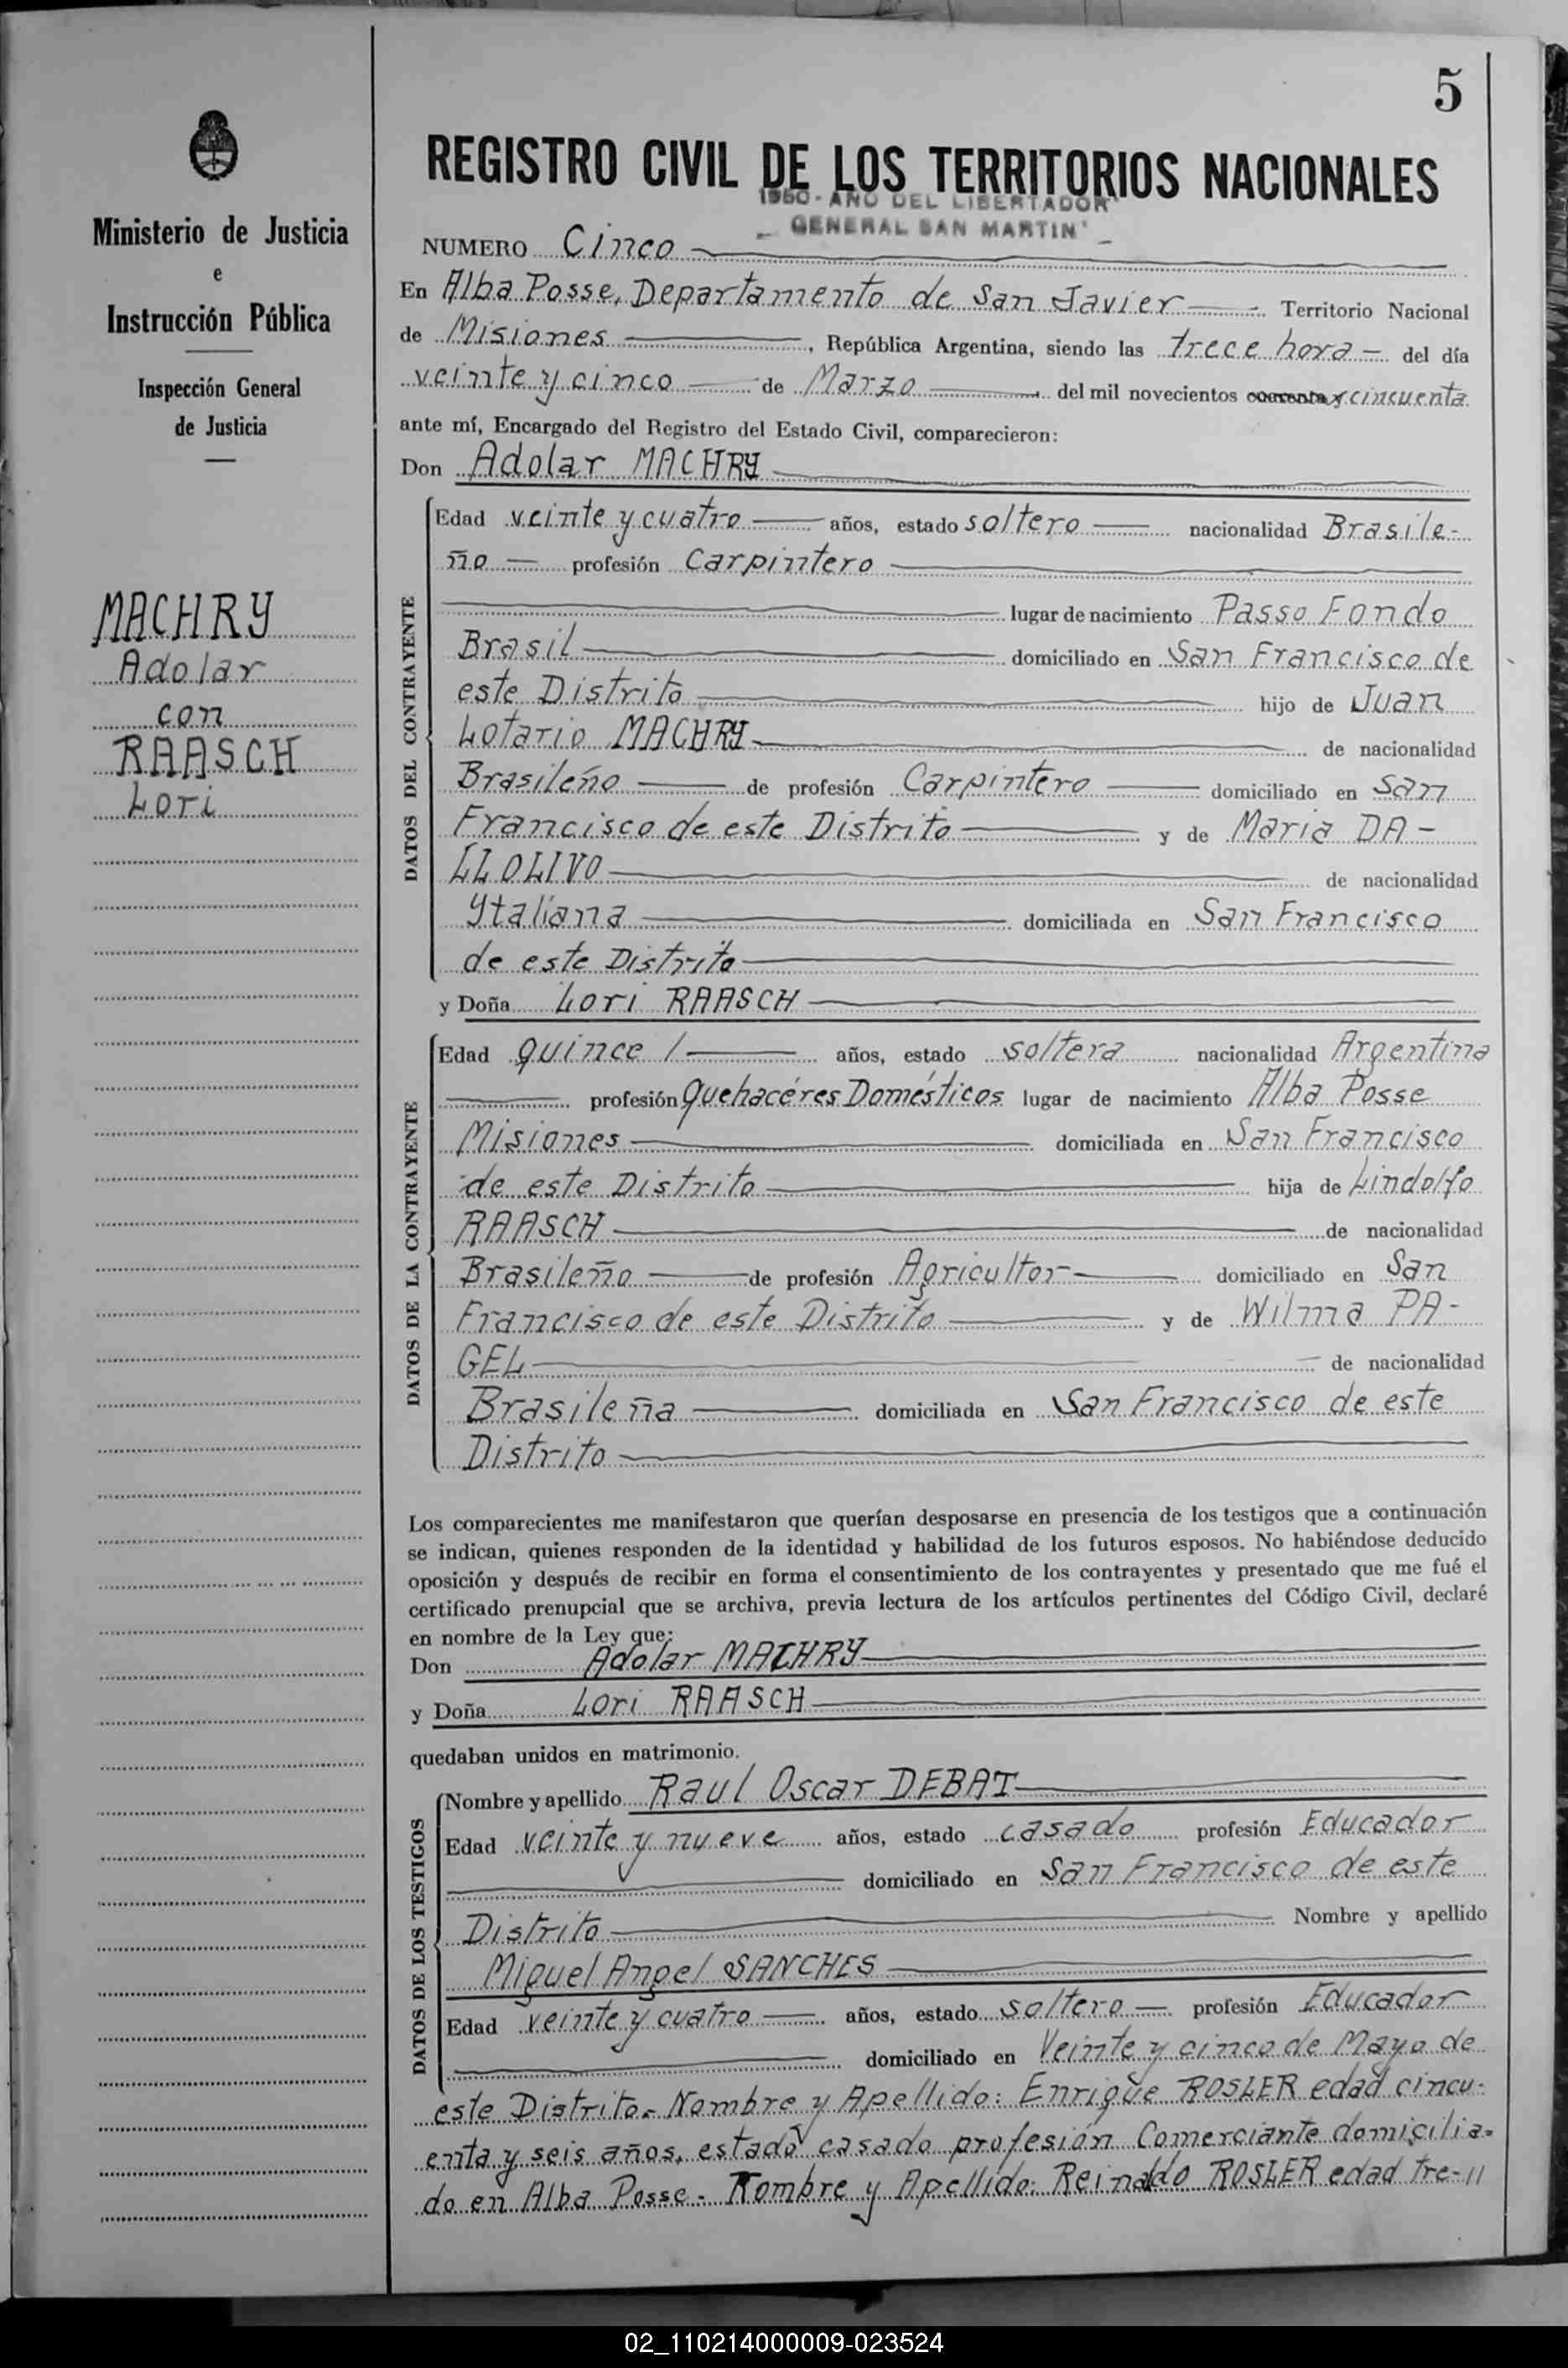 5
Ministerio de Justicia
e
Instrucción Pública
Inspección General
de Justicia
MACHRY
Adolar
con
RAASCH
Lori
REGISTRO CIVIL DE LOS TERRITORIOS NACIONALES
1950 - AÑO DEL LIBERTADOR
GENERAL SAN MARTIN
NUMERO Cinco
En Alba Posse, Departamento de San Javier Territorio Nacional
de Misiones, República Argentina, siendo las trece hora del día
veinte y cinco de Marzo del mil novecientos cuarenta y cincuenta
ante mí, Encargado del Registro del Estado Civil, comparecieron:
Don Adolar MACHRY
DATOS DEL CONTRAYENTE
Edad veinte y cuatro años, estado soltero nacionalidad Brasile-
ño profesión Carpintero
lugar de nacimiento Passo Fondo
Brasil domiciliado en San Francisco de
este Distrito hijo de Juan
Lotario MACHRY de nacionalidad
Brasileño de profesión Carpintero domiciliado en San
Francisco de este Distrito y de Maria DA-
LLOLIVO de nacionalidad
Ytaliana domiciliada en San Francisco
de este Distrito
y Doña Lori RAASCH
DATOS DE LA CONTRAYENTE
Edad quince / años, estado soltera nacionalidad Argentina
profesión Quehacéres Domésticos lugar de nacimiento Alba Posse
Misiones domiciliada en San Francisco
de este Distrito hija de Lindolfo
RAASCH de nacionalidad
Brasileño de profesión Agricultor domiciliado en San
Francisco de este Distrito y de Wilma PA-
GEL de nacionalidad
Brasileña domiciliada en San Francisco de este
Distrito
Los comparecientes me manifestaron que querían desposarse en presencia de los testigos que a continuación
se indican, quienes responden de la identidad y habilidad de los futuros esposos. No habiéndose deducido
oposición y después de recibir en forma el consentimiento de los contrayentes y presentado que me fué el
certificado prenupcial que se archiva, previa lectura de los artículos pertinentes del Código Civil, declaré
en nombre de la Ley que:
Don Adolar MACHRY
y Doña Lori RAASCH
quedaban unidos en matrimonio.
DATOS DE LOS TESTIGOS
Nombre y apellido Raul Oscar DEBAT
Edad veinte y nueve años, estado casado profesión Educador
domiciliado en San Francisco de este
Distrito Nombre y apellido
Miguel Angel SANCHES
Edad veinte y cuatro años, estado soltero profesión Educador
domiciliado en Veinte y cinco de Mayo de
este Distrito.- Nombre y Apellido: Enrique ROSLER edad cincu-
enta y seis años, estado casado profesión Comerciante domicilia-
do en Alba Posse.- Nombre y Apellido: Reinaldo ROSLER edad tre-//
02_110214000009-023524